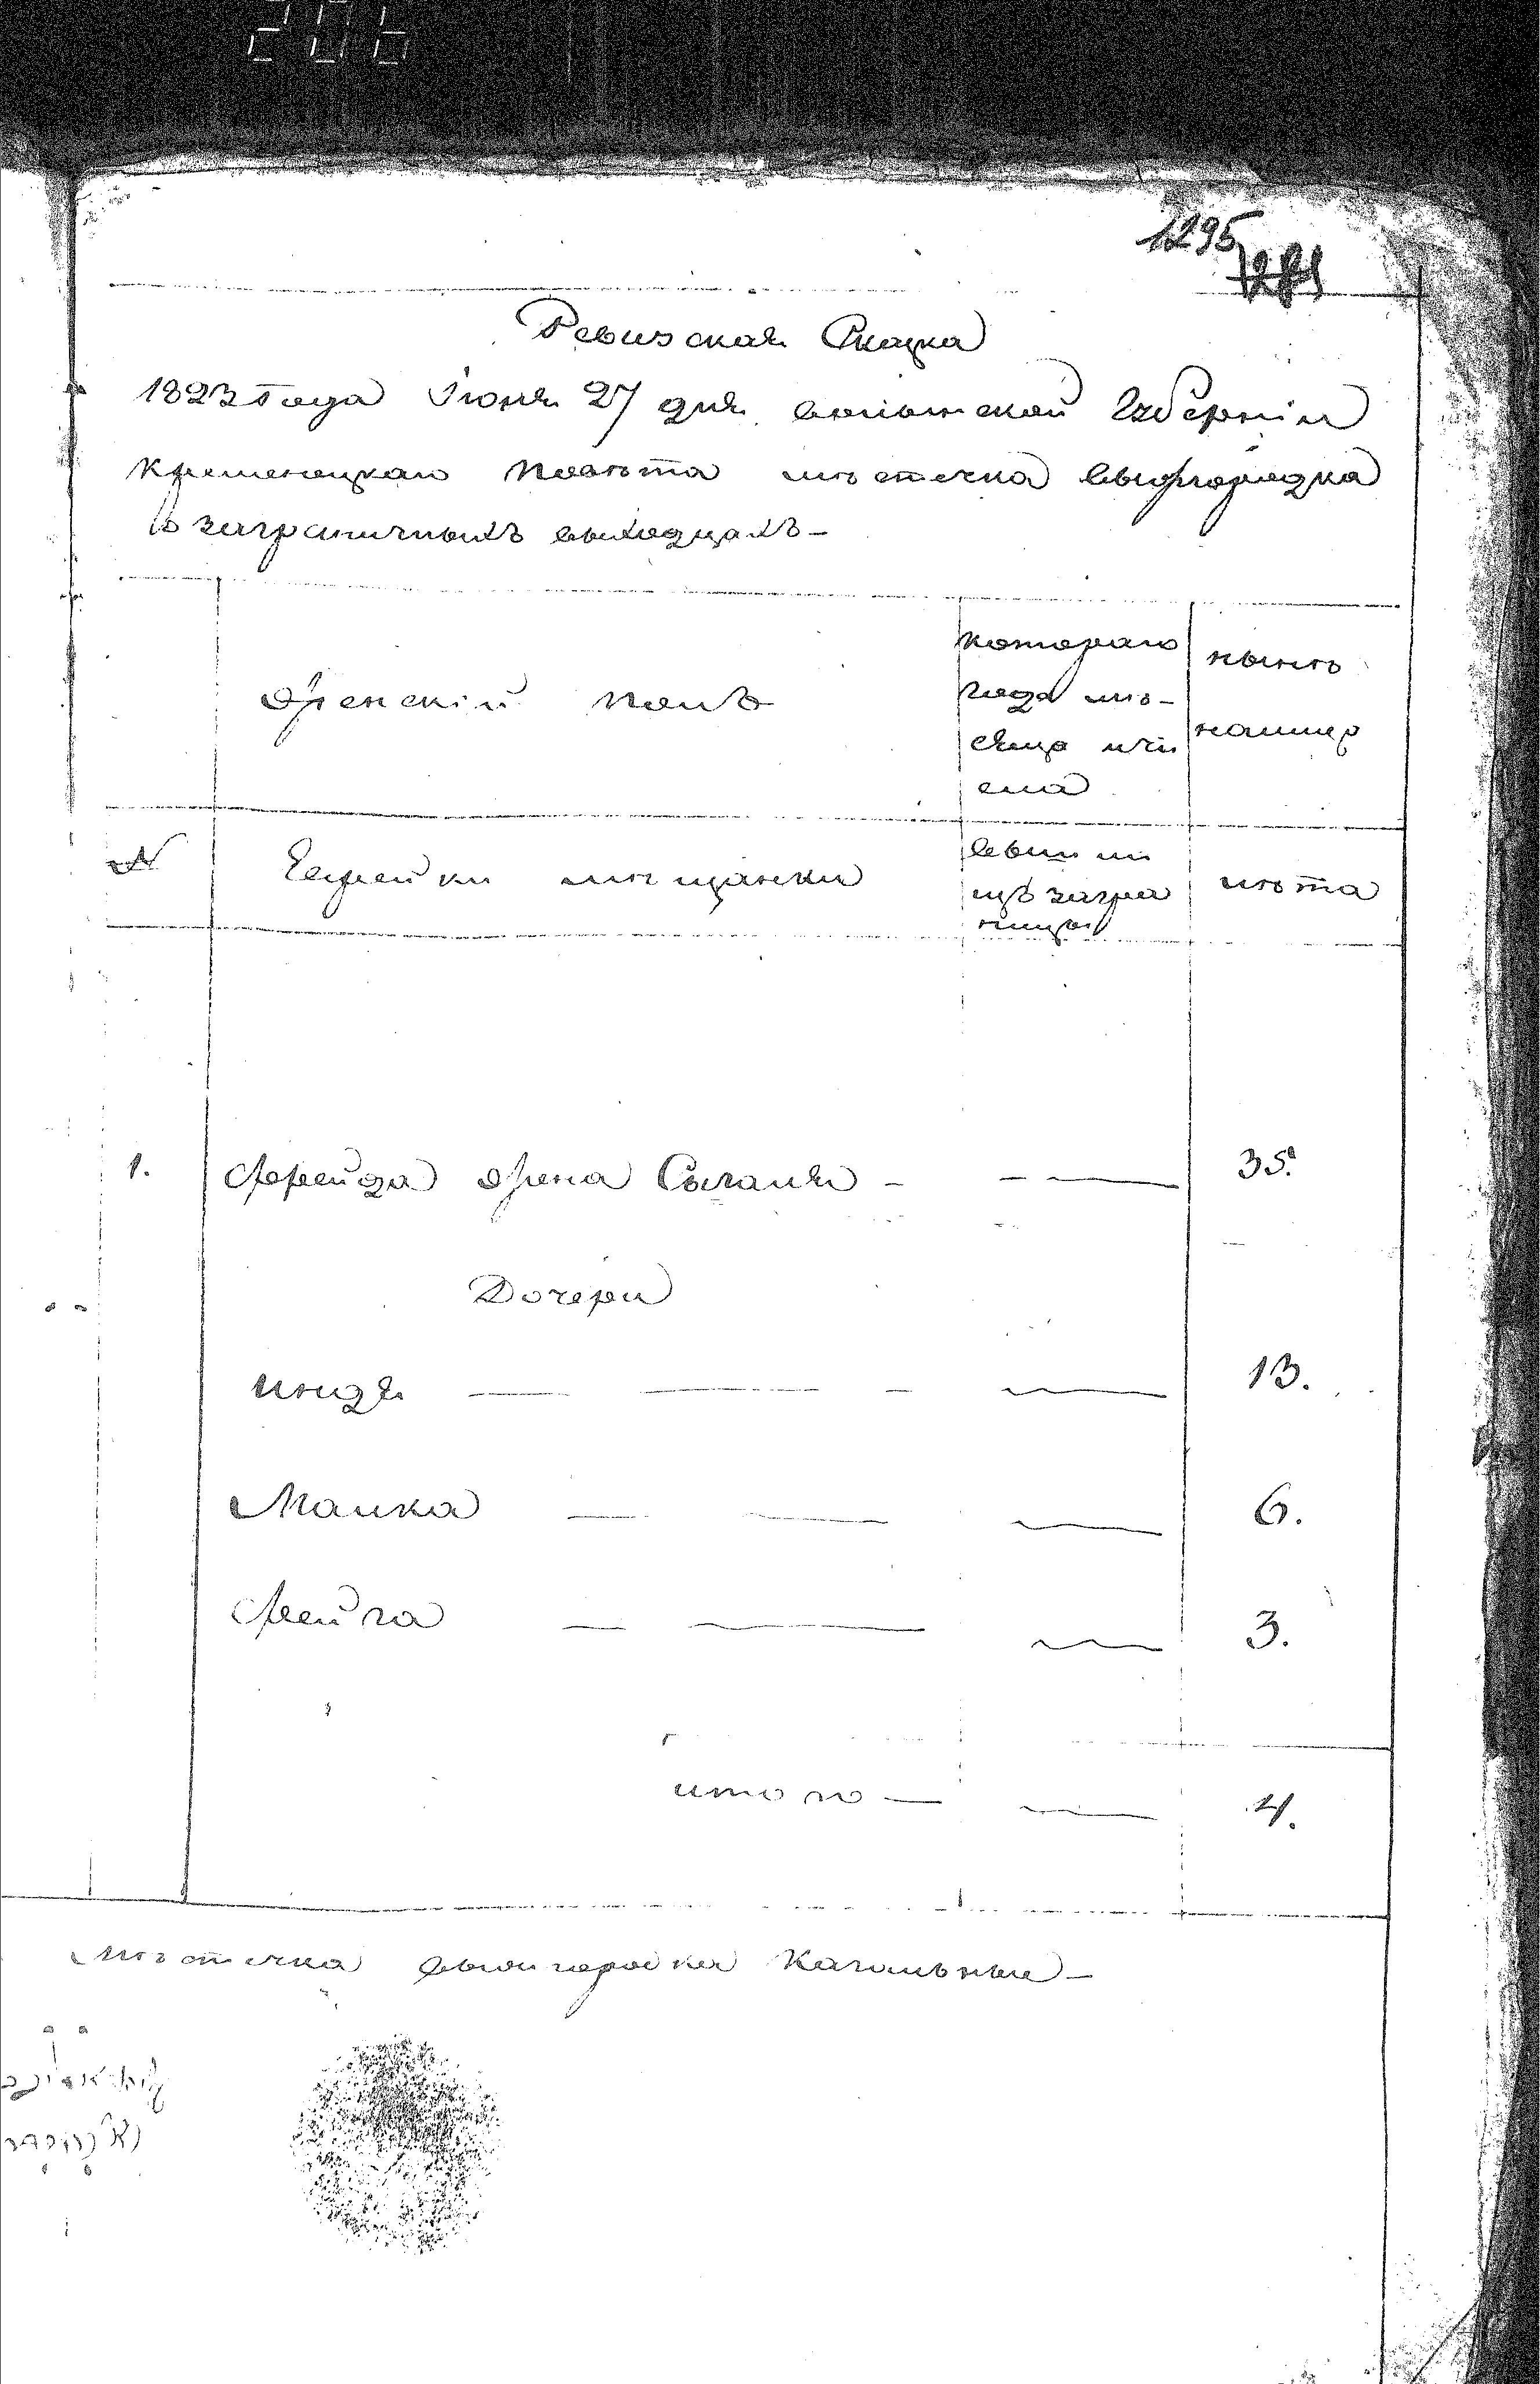 206
1295
1281
Ревизская Сказка
1823 года Июня 27 дня волынской Губерніи
Кременецкаго повѣта мѣстечка вышгородка
о заграничныхъ выходцахъ-
женскій полъ
котораго
года мѣ-
сяца ичи
сла
нынѣ
налицо
№
Еврейки мѣщанки
вышли
изъ загра
ницы
лѣта
1. Фрейда жена 35.
Дочери
13.
Малка 6.
Фейга 3.
итого 4.
мѣстечка вышгородка Кагальные-